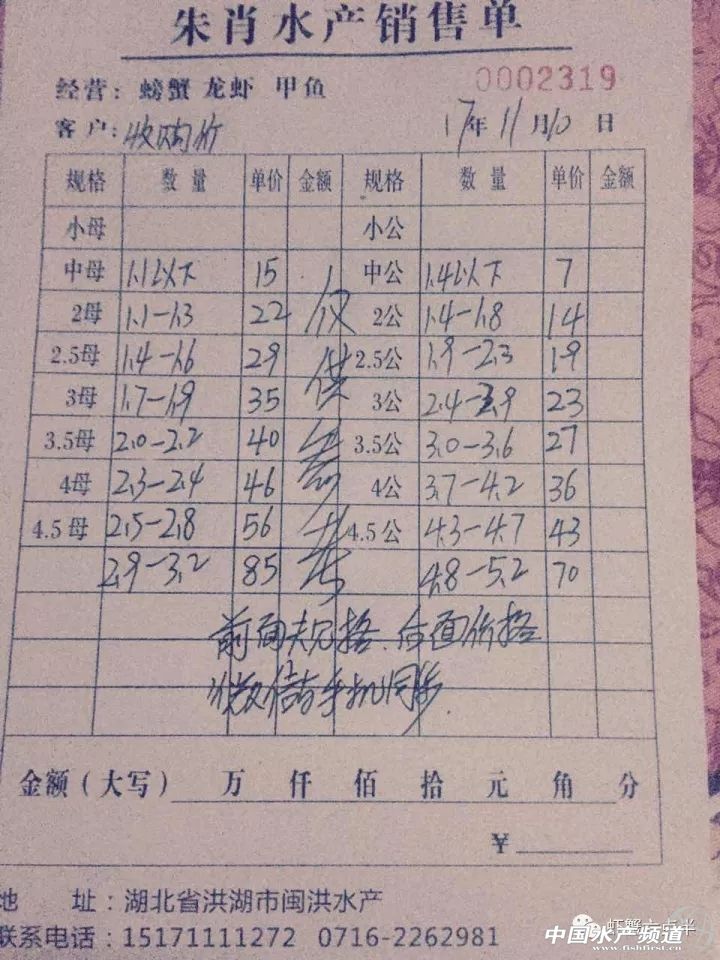 朱肖水产销售单
经营：螃蟹 龙虾 甲鱼 0002319
客户：收购价 17年11月10日
规格 数量 单价 金额 规格 数量 单价 金额
小母 小公
中母 1.1以下 15 中公 1.4以下 7
2母 1.1-1.3 22 仅 2公 1.4-1.8 14
2.5母 1.4-1.6 29 供 2.5公 1.9-2.3 19
3母 1.7-1.9 35 3公 2.4-2.9 23
3.5母 2.0-2.2 40 参 3.5公 3.0-3.6 27
4母 2.3-2.4 46 4公 3.7-4.2 36
4.5母 2.5-2.8 56 考 4.5公 4.3-4.7 43
2.9-3.2 85 4.8-5.2 70
前面规格.后面价格
微信与手机同步.
金额（大写） 万 仟 佰 拾 元 角 分
¥
地 址：湖北省洪湖市闽洪水产
联系电话：15171111272 0716-2262981
虾蟹六点半
中国水产频道
www.fishfirst.cn